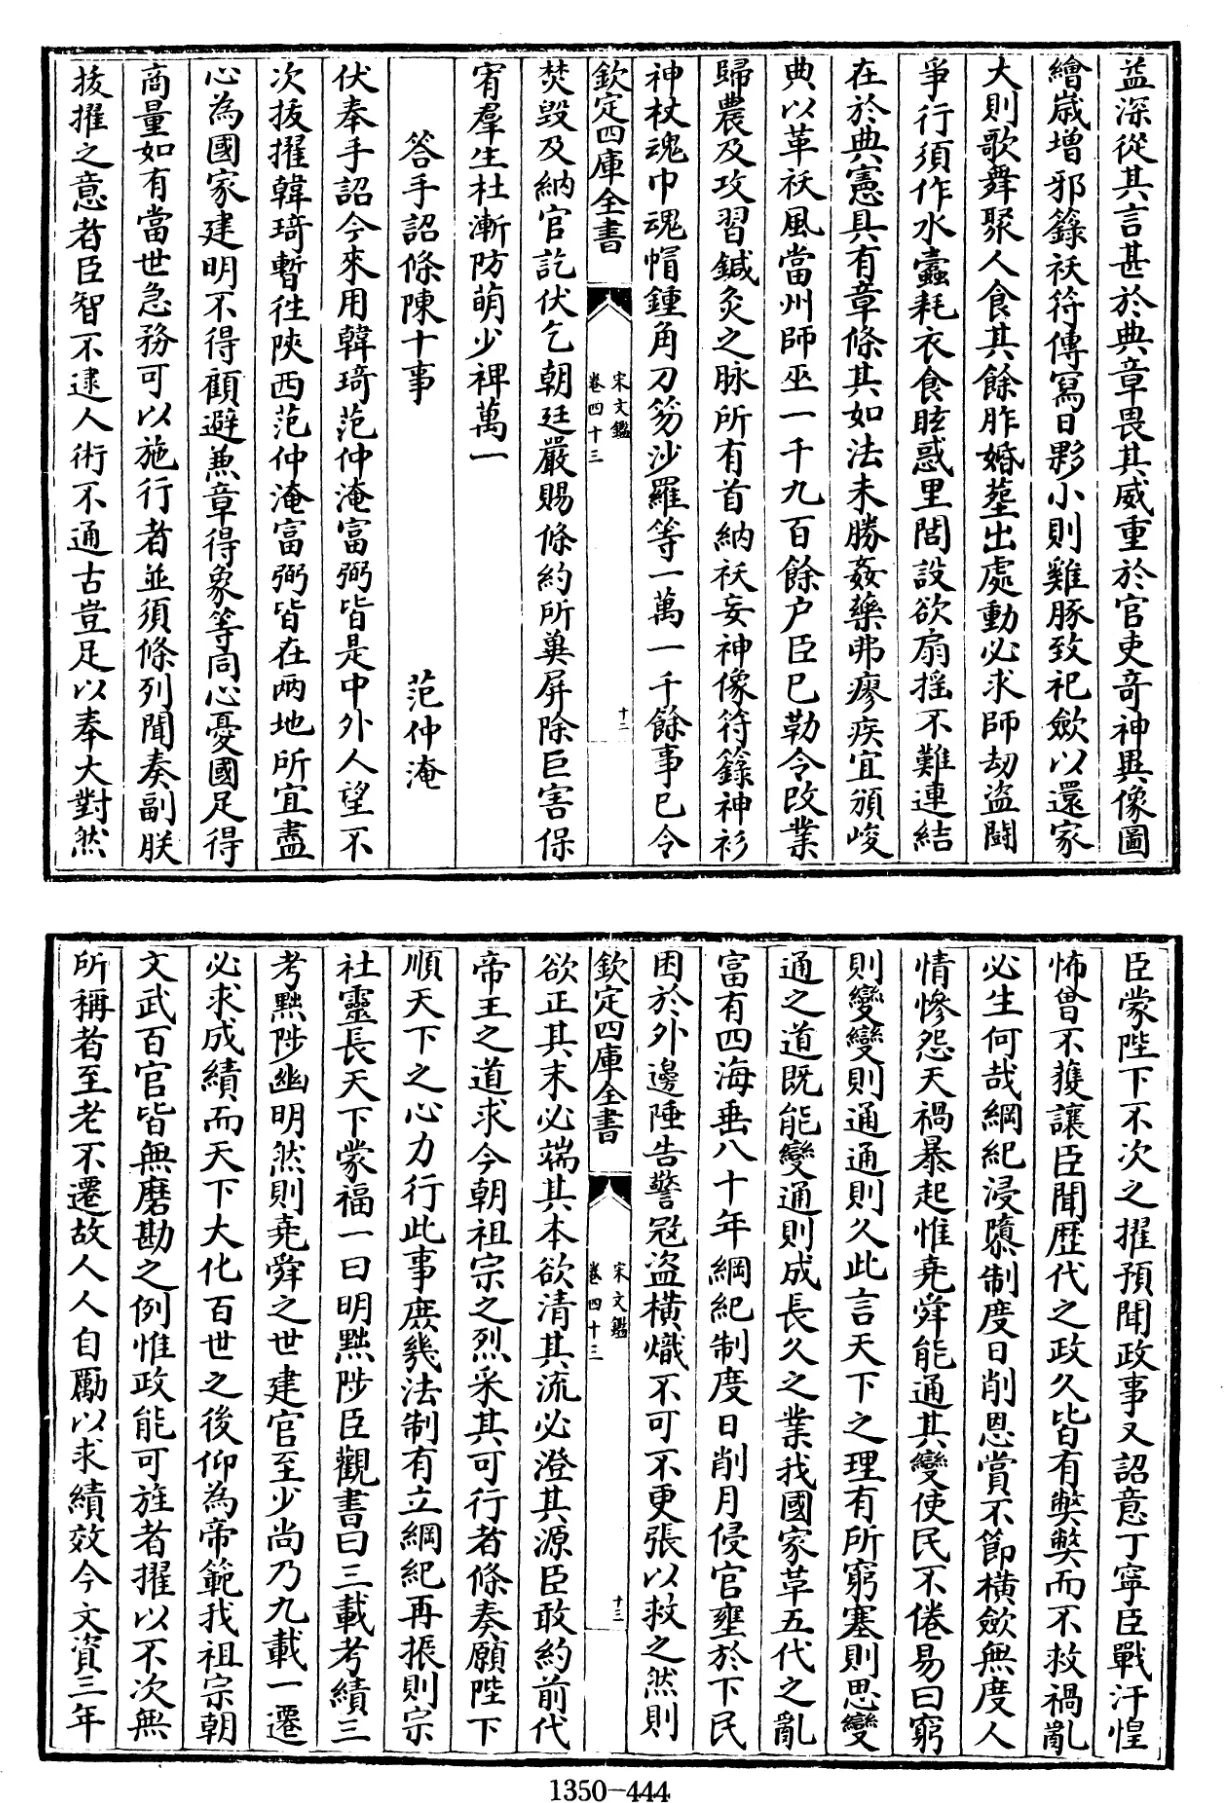 益深從其言甚於典章畏其威重於官吏奇神異像圖
繪嵗增邪籙祅符傳寫日夥小則雞豚致祀歛以還家
大則歌舞聚人食其餘胙婚塟出處動必求師刼盜鬪
爭行須作水蠧耗衣食眩惑里閭設欲扇揺不難連結
在於典憲具有章條其如法未勝姦藥弗瘳疾宜頒峻
典以革祅風當州師巫一千九百餘户臣巳勒令改業
歸農及攻習鍼灸之脉所有首納祅妄神像符籙神衫
神杖魂巾魂帽鍾角刀笏沙羅等一萬一千餘事巳令
欽定四庫全書
宋文鑑
卷四十三
十二
焚毀及納官訖伏乞朝廷嚴賜條約所冀屏除巨害保
宥羣生杜漸防萌少裨萬一
答手詔條陳十事 范仲淹
伏奉手詔今來用韓琦范仲淹富弼皆是中外人望不
次拔擢韓琦暫徃陜西范仲淹富弼皆在兩地所宜盡
心為國家建明不得顧避兼章得象等同心憂國足得
商量如有當世急務可以施行者並須條列聞奏副朕
拔擢之意者臣智不逮人術不通古豈足以奉大對然
臣蒙陛下不次之擢預聞政事又詔意丁寧臣戰汗惶
怖曾不獲讓臣聞歷代之政久皆有弊弊而不救禍亂
必生何哉綱紀浸隳制度日削恩賞不節橫歛無度人
情慘怨天禍暴起惟堯舜能通其變使民不倦易曰窮
則變變則通通則久此言天下之理有所窮塞則思變
通之道既能變通則成長久之業我國家革五代之亂
富有四海垂八十年綱紀制度日削月侵官壅於下民
困於外邊陲告警冦盜橫熾不可不更張以救之然則
欽定四庫全書
宋文鑑
卷四十三
十三
欲正其末必端其本欲清其流必澄其源臣敢約前代
帝王之道求今朝祖宗之烈采其可行者條奏願陛下
順天下之心力行此事庶幾法制有立綱紀再振則宗
社靈長天下蒙福一曰明黜陟臣觀書曰三載考績三
考黜陟幽明然則堯舜之世建官至少尚乃九載一遷
必求成績而天下大化百世之後仰為帝範我祖宗朝
文武百官皆無磨勘之例惟政能可旌者擢以不次無
所稱者至老不遷故人人自勵以求績效今文資三年
1350-444